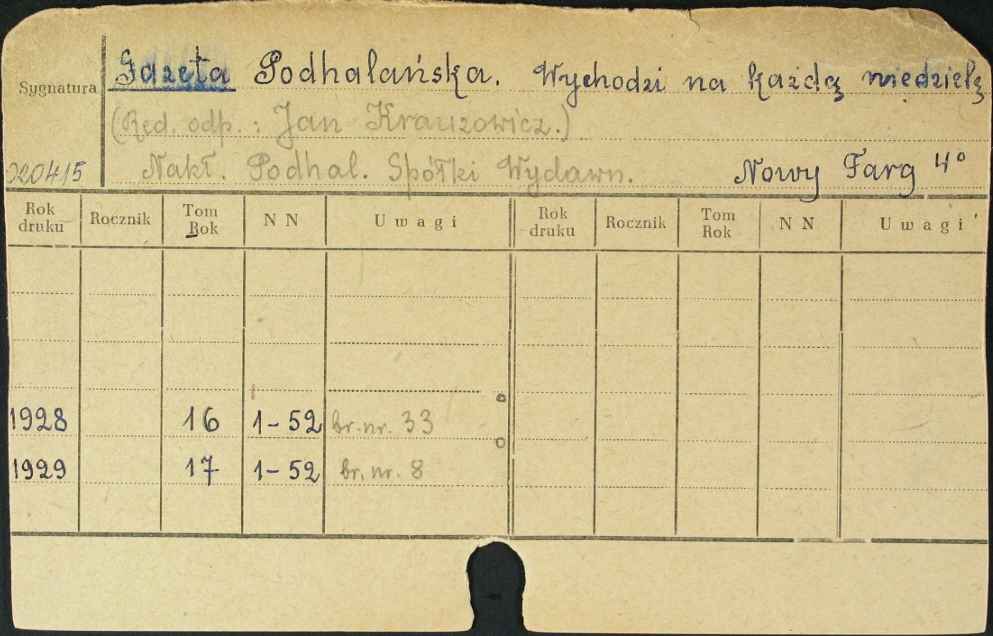 Gazeta Podhalańska. Wychodzi na każdą niedzielę
Sygnatura
(Red. odp. : Jan Krauzowicz.)
020415 Nakł. Podhal. Spółki Wydawn. Nowy Targ 4°
Rok druku Rocznik Tom Rok N N Uwagi Rok druku Rocznik Tom Rok N N Uwagi
1928 16 1-52 br. nr. 33
1929 17 1-52 br. nr. 8